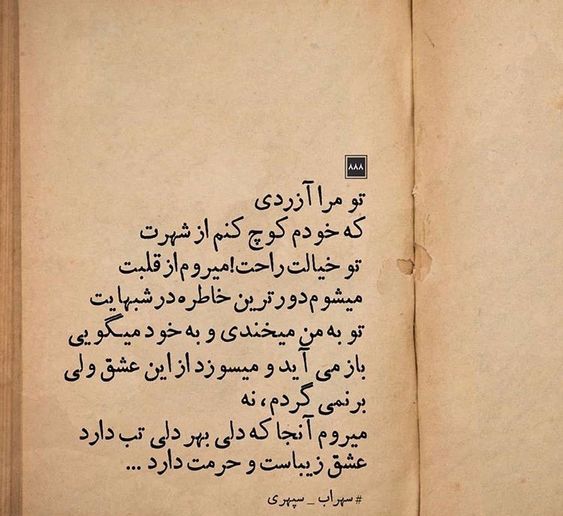 ۸۸۸
تو مرا آزردی
که خودم کوچ کنم از شهرت
تو خیالت راحت!میروم از قلبت
میشوم دورترین خاطره در شبهایت
تو به من میخندی و به خود میگویی
باز می آید و میسوزد از این عشق ولی
برنمی گردم، نه
میروم آنجا که دلی بهر دلی تب دارد
عشق زیباست و حرمت دارد ...
# سهراب _ سپهری